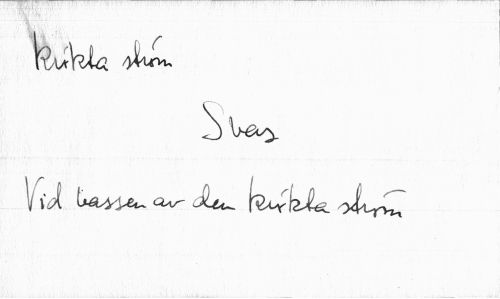 krökta ström
Vid vassen av den krökta ström